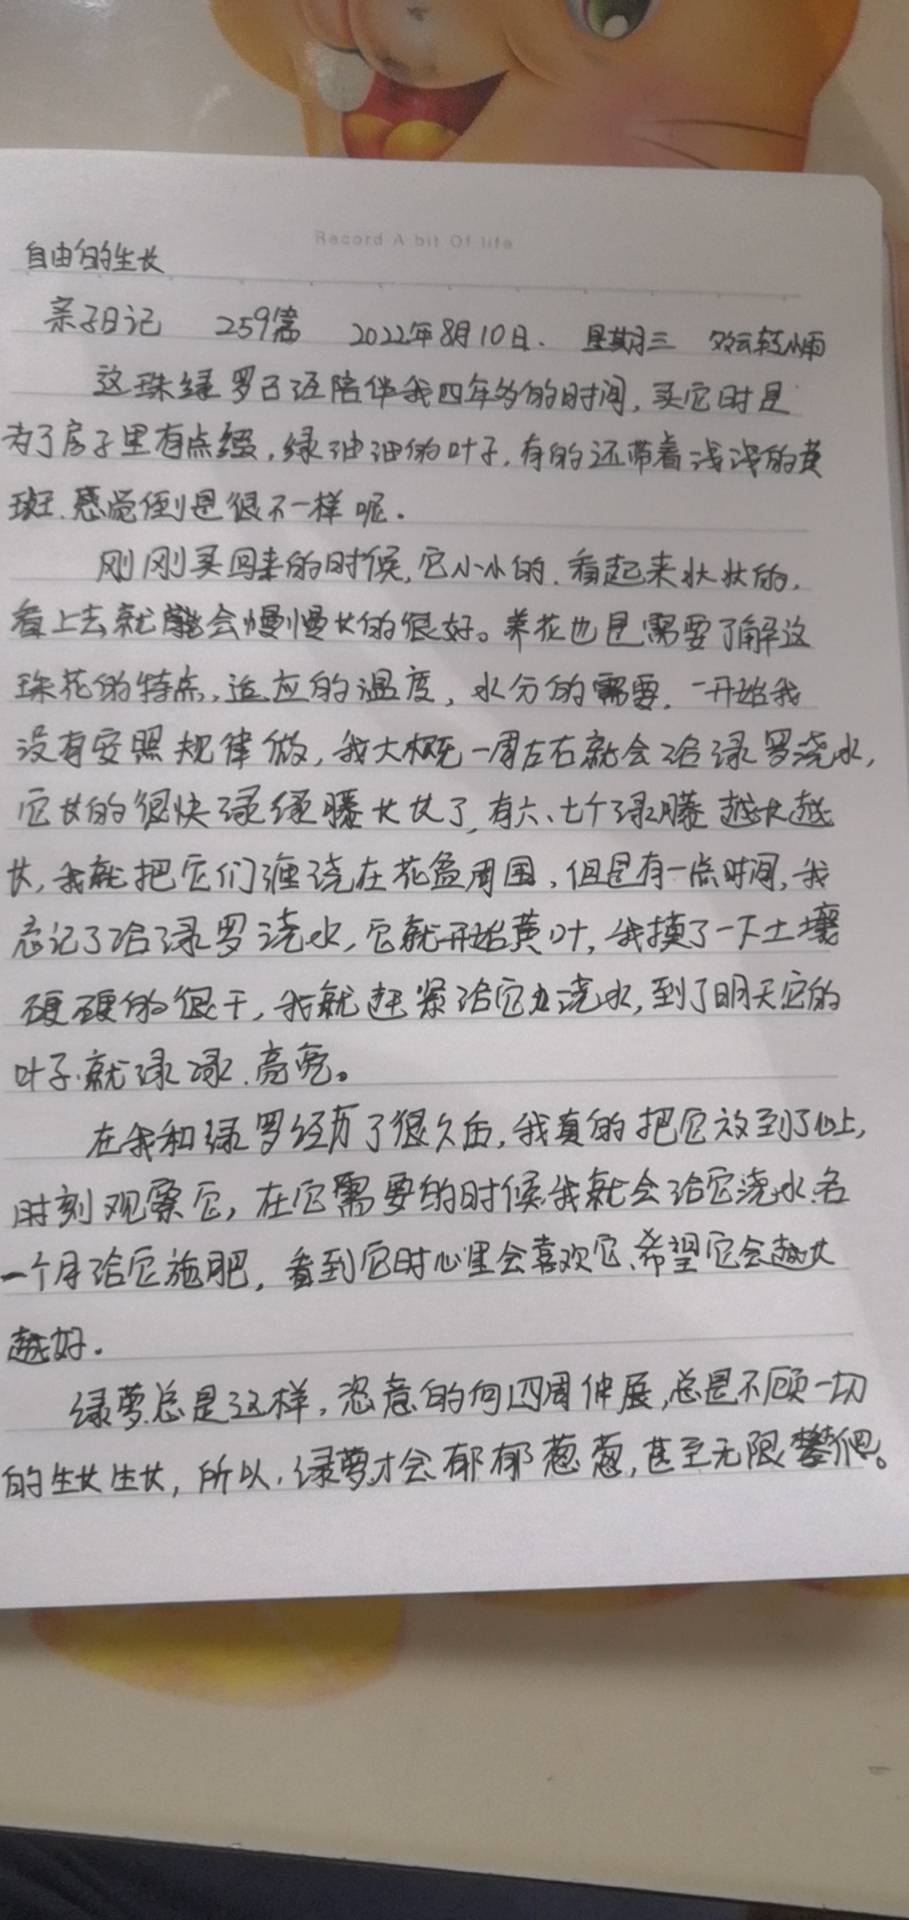 Record A bit Of life
自由的生长
亲子日记 259篇 2022年8月10日. 星期三 多云转小雨
这珠绿罗已经陪伴我四年多的时间,买它时是
为了房子里有点缀,绿油油的叶子,有的还带着浅浅的黄
斑.感觉倒是很不一样呢.
刚刚买回来的时候,它小小的.看起来状状的,
看上去就能会慢慢长的很好。养花也是需要了解这
珠花的特点,适应的温度,水分的需要,一开始我
没有安照规律做,我大概一周左右就会给绿罗浇水,
它长的很快绿绿藤长长了,有六、七个绿藤越长越
长,我就把它们缠绕在花盆周围,但是有一点时间,我
忘记了给绿罗浇水,它就开始黄叶,我摸了一下土壤
硬硬的很干,我就赶紧给它浇水,到了明天它的
叶子就绿绿.亮亮。
在我和绿罗经历了很久后,我真的把它放到了心上,
时刻观察它,在它需要的时候我就会给它浇水.各
一个月给它施肥,看到它时心里会喜欢它、希望它会越长
越好.
绿萝总是这样,恣意的向四周伸展,总是不顾一切
的生长生长,所以,绿萝才会郁郁葱葱,甚至无限攀爬。